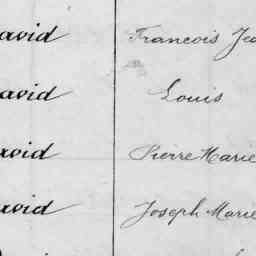 avid Francois Je
avid Louis
avid Pierre Marie
avid Joseph Marie